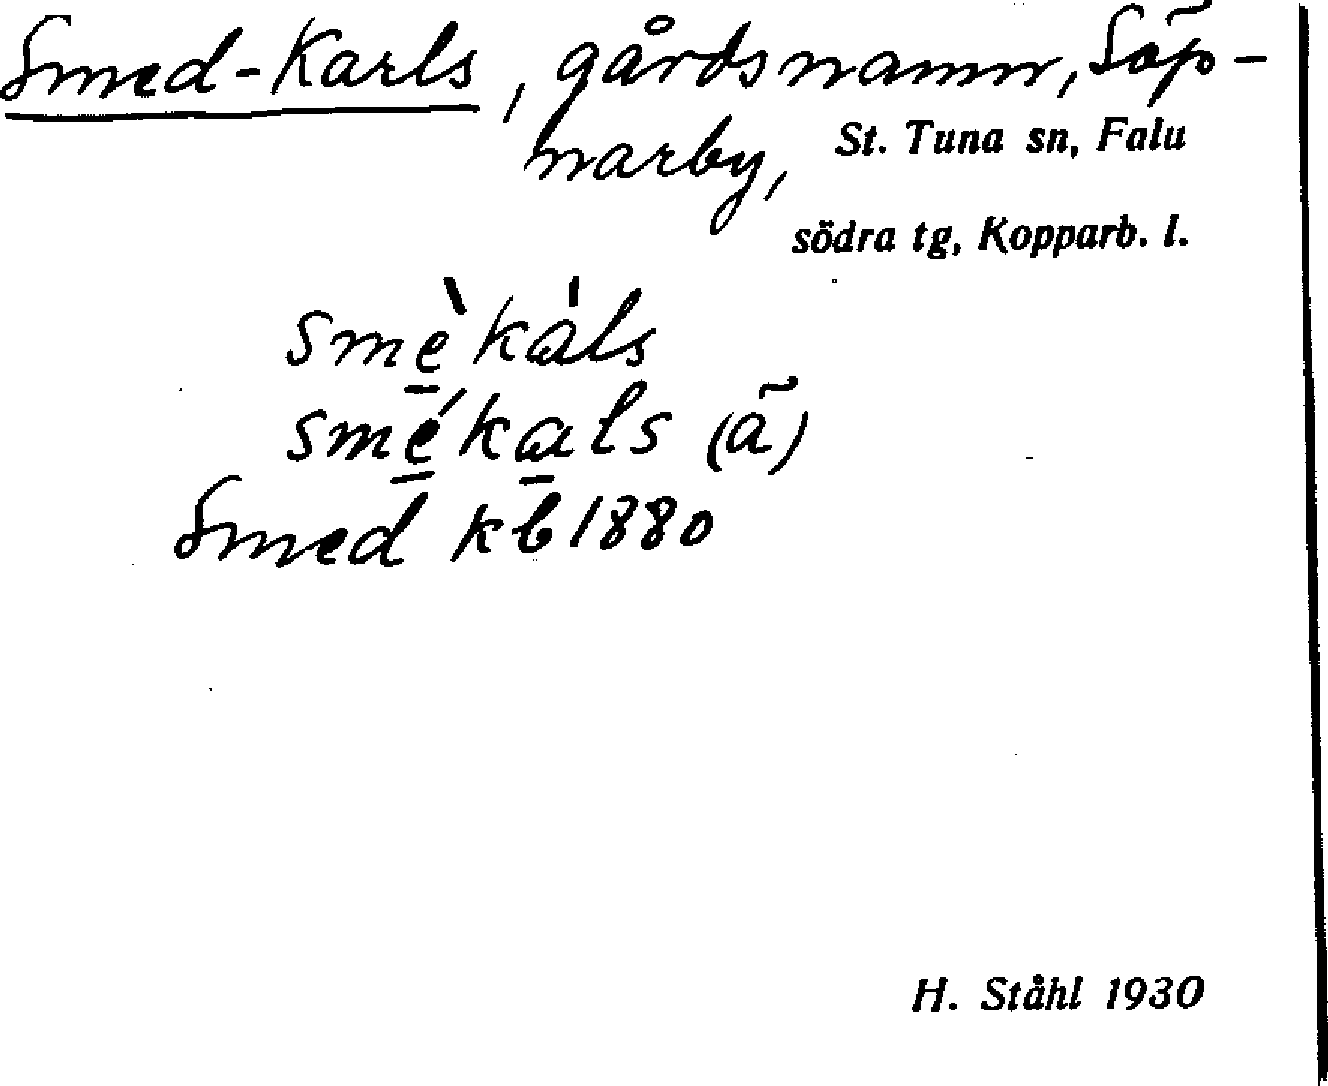 Smed-Karls, gårdsnamn, Söp-
narby, St. Tuna sn, Falu
södra tg, Kopparb. l.
smè̠káls
smé̠ka̠ls (ã)
Smed kb 1880
H. Ståhl 1930